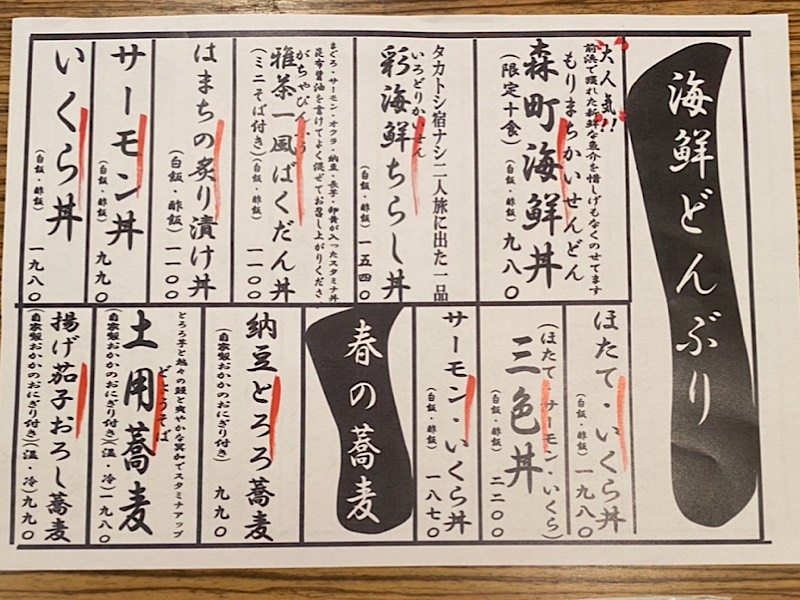 海鮮どんぶり
大人気!!
前浜で獲れた新鮮な魚介を惜しげもなくのせてます
もりまちかいせんどん
森町海鮮丼
(限定十食)
(白飯・酢飯)九八〇
タカトシ宿ナシ二人旅に出た一品
いろどりかいせん
彩海鮮ちらし丼
(白飯・酢飯)一五四〇
まぐろ・サーモン・オクラ・納豆・長芋・卵黄が入ったスタミナ丼
昆布醤油を書けてよく混ぜてお召し上がりください
がちゃぴんふう
雅茶一風ばくだん丼
(ミニそば付き)(白飯・酢飯)一一〇〇
はまちの炙り漬け丼
(白飯・酢飯)一一〇〇
サーモン丼
(白飯・酢飯)九九〇
いくら丼
(白飯・酢飯)一九八〇
ほたて・いくら丼
(白飯・酢飯)一九八〇
三色丼
(ほたて・サーモン・いくら)
(白飯・酢飯)二二〇〇
サーモン・いくら丼
(白飯・酢飯)一八七〇
春の蕎麦
納豆とろろ蕎麦
(自家製おかかのおにぎり付き)九九〇
とろろ芋と
爽やかな
でスタミナアップ
どようそば
土用蕎麦
(自家製おかかのおにぎり付き)(温・冷)一九八〇
揚げ茄子おろし蕎麦
(自家製おかかのおにぎり付き)(温・冷)九九〇